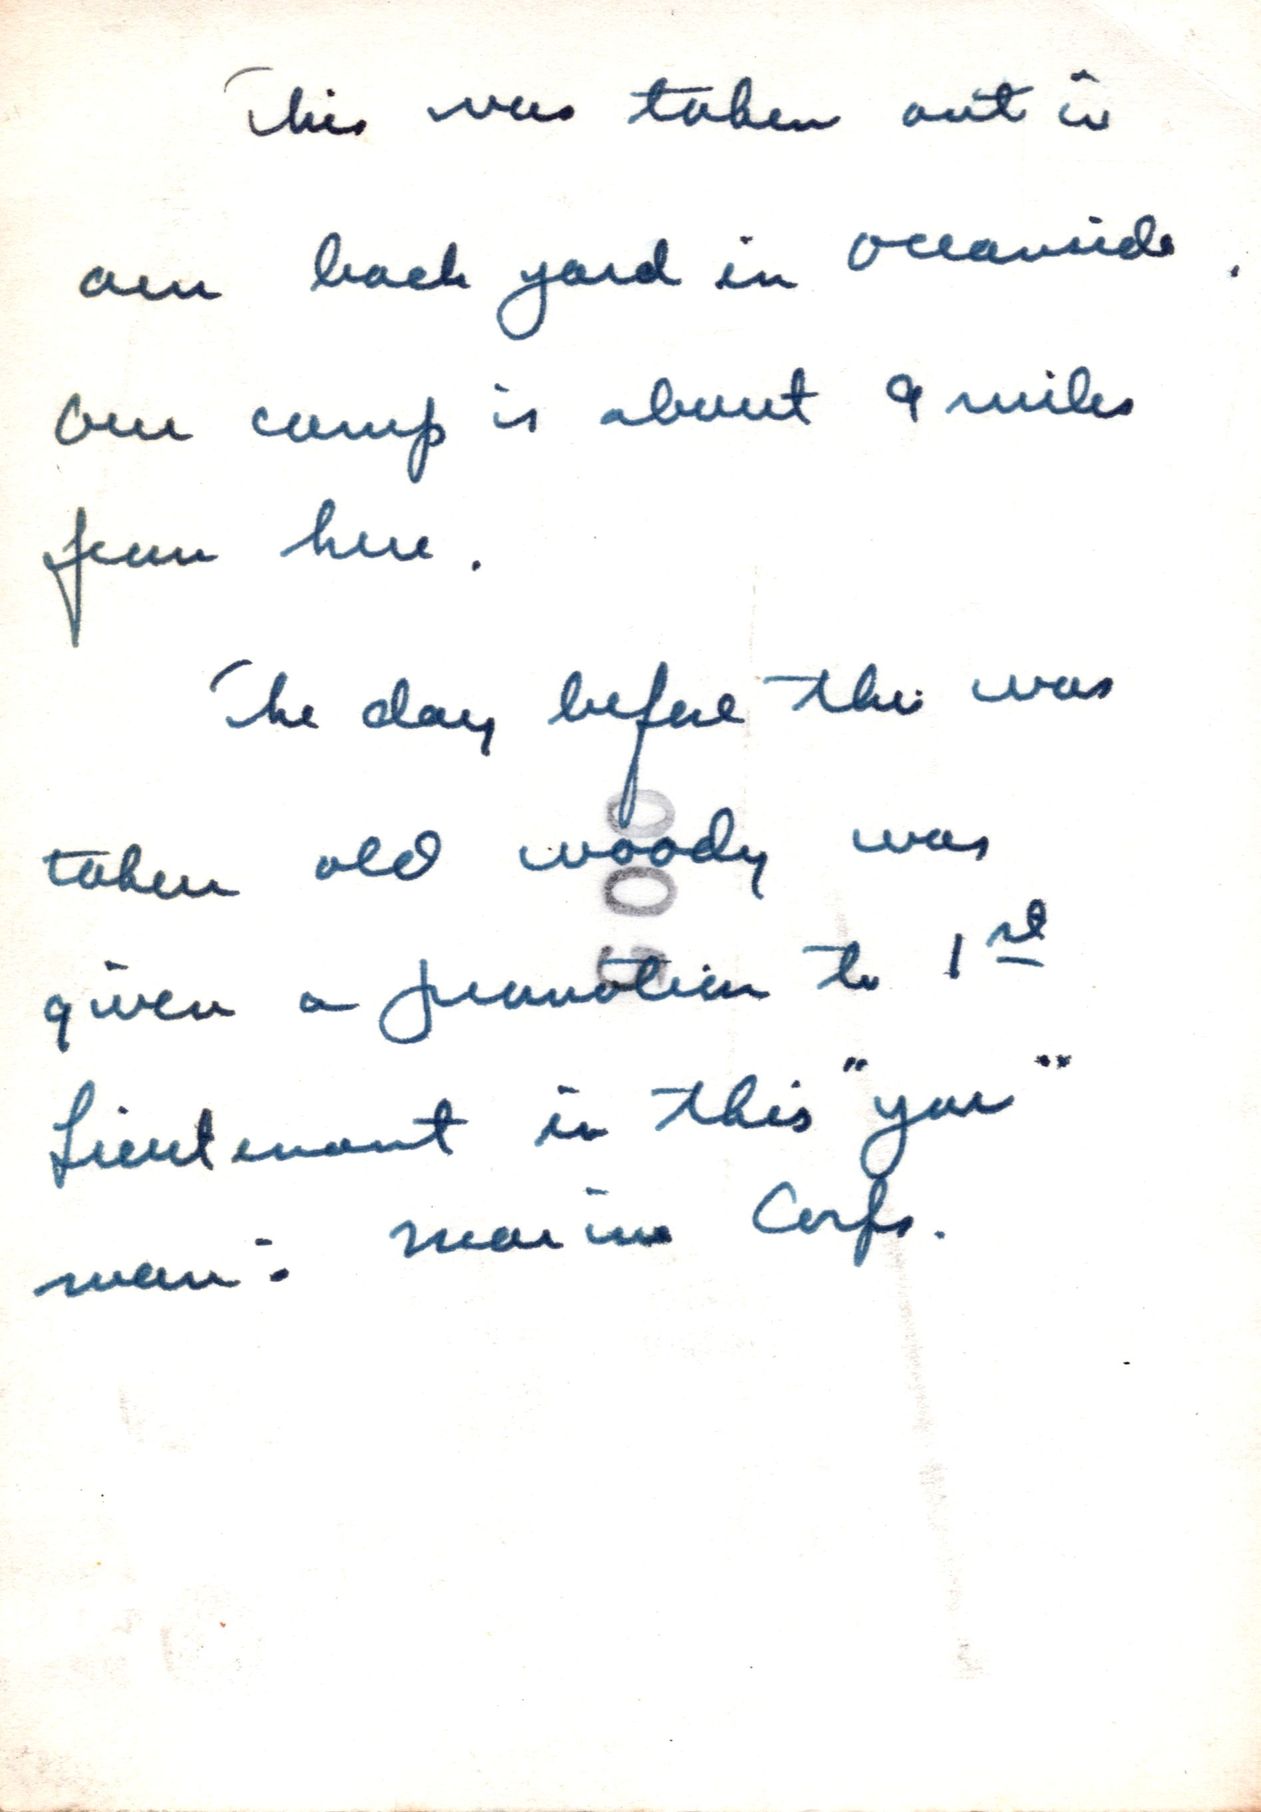 This was taken out in
our back yard in Oceanside.
Our camp is about 9 miles
from here.
The day before this was
taken old woody was
given a promotion to 1st
Lieutenant in this "yar"
man's Marine Corps.